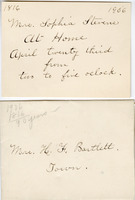 1816 1906
Mrs. Sophia Stevens
At Home
April twenty third
from
two to five oclock.
Mrs. H. H. Bartlett.
Town.